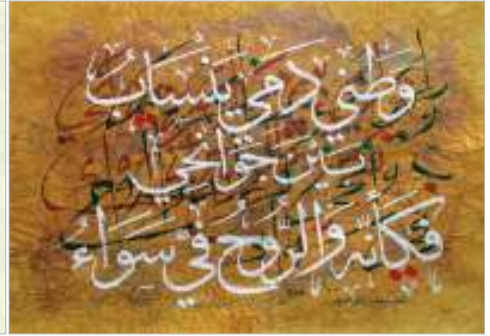 وَطَنِي دَمِي يَنْسَابُ
بَيْنَ جَوَانِحِي
فَكَأَنَّهُ وَالرُّوحُ فِي سَوَاءُ